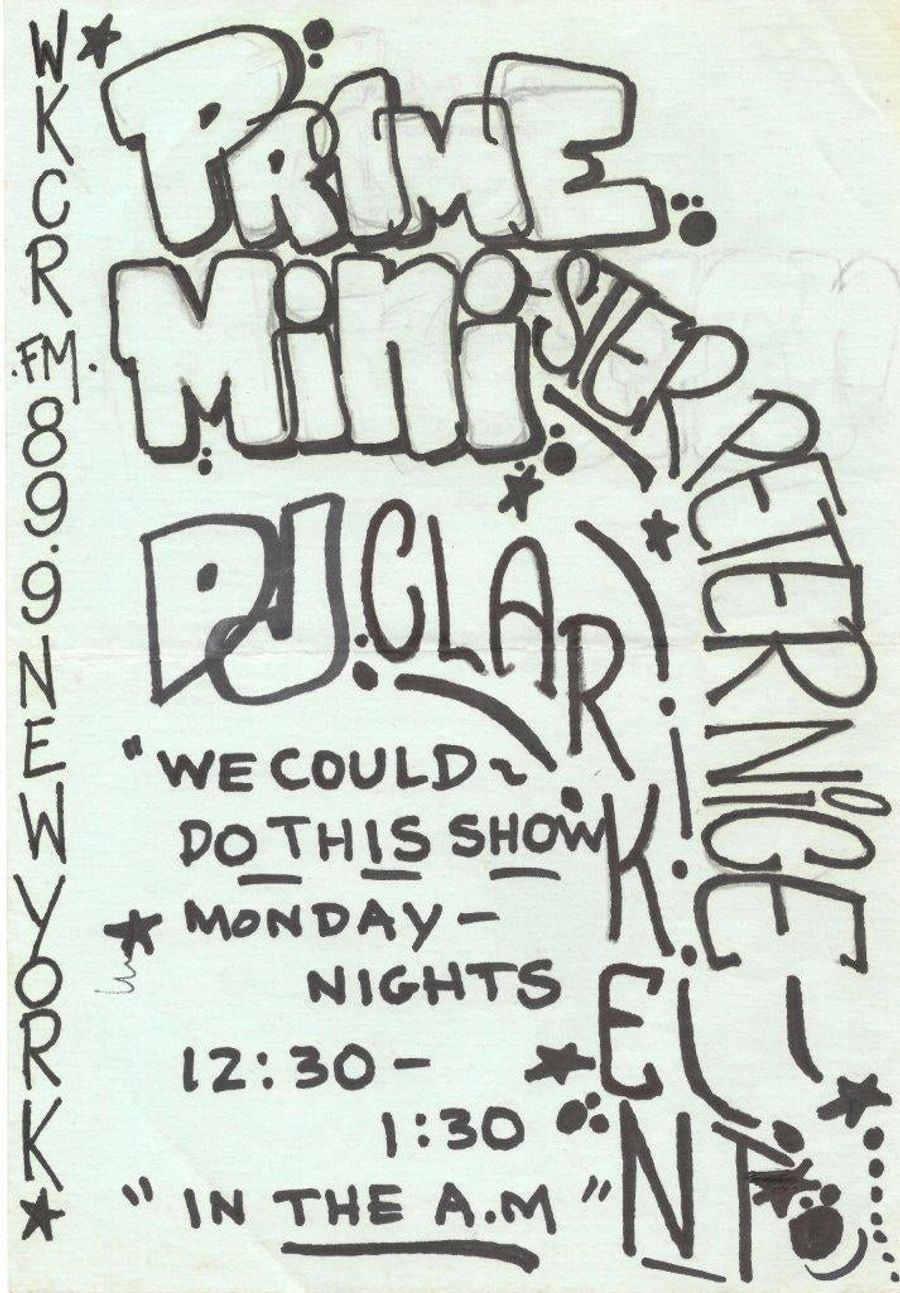 WKCR FM 89.9 NEW YORK
PRIME
MINISTER PETE NICE
PJ CLARK KENT
"WE COULD
DO THIS SHOW
MONDAY-
NIGHTS
12:30-
1:30
"IN THE A.M"